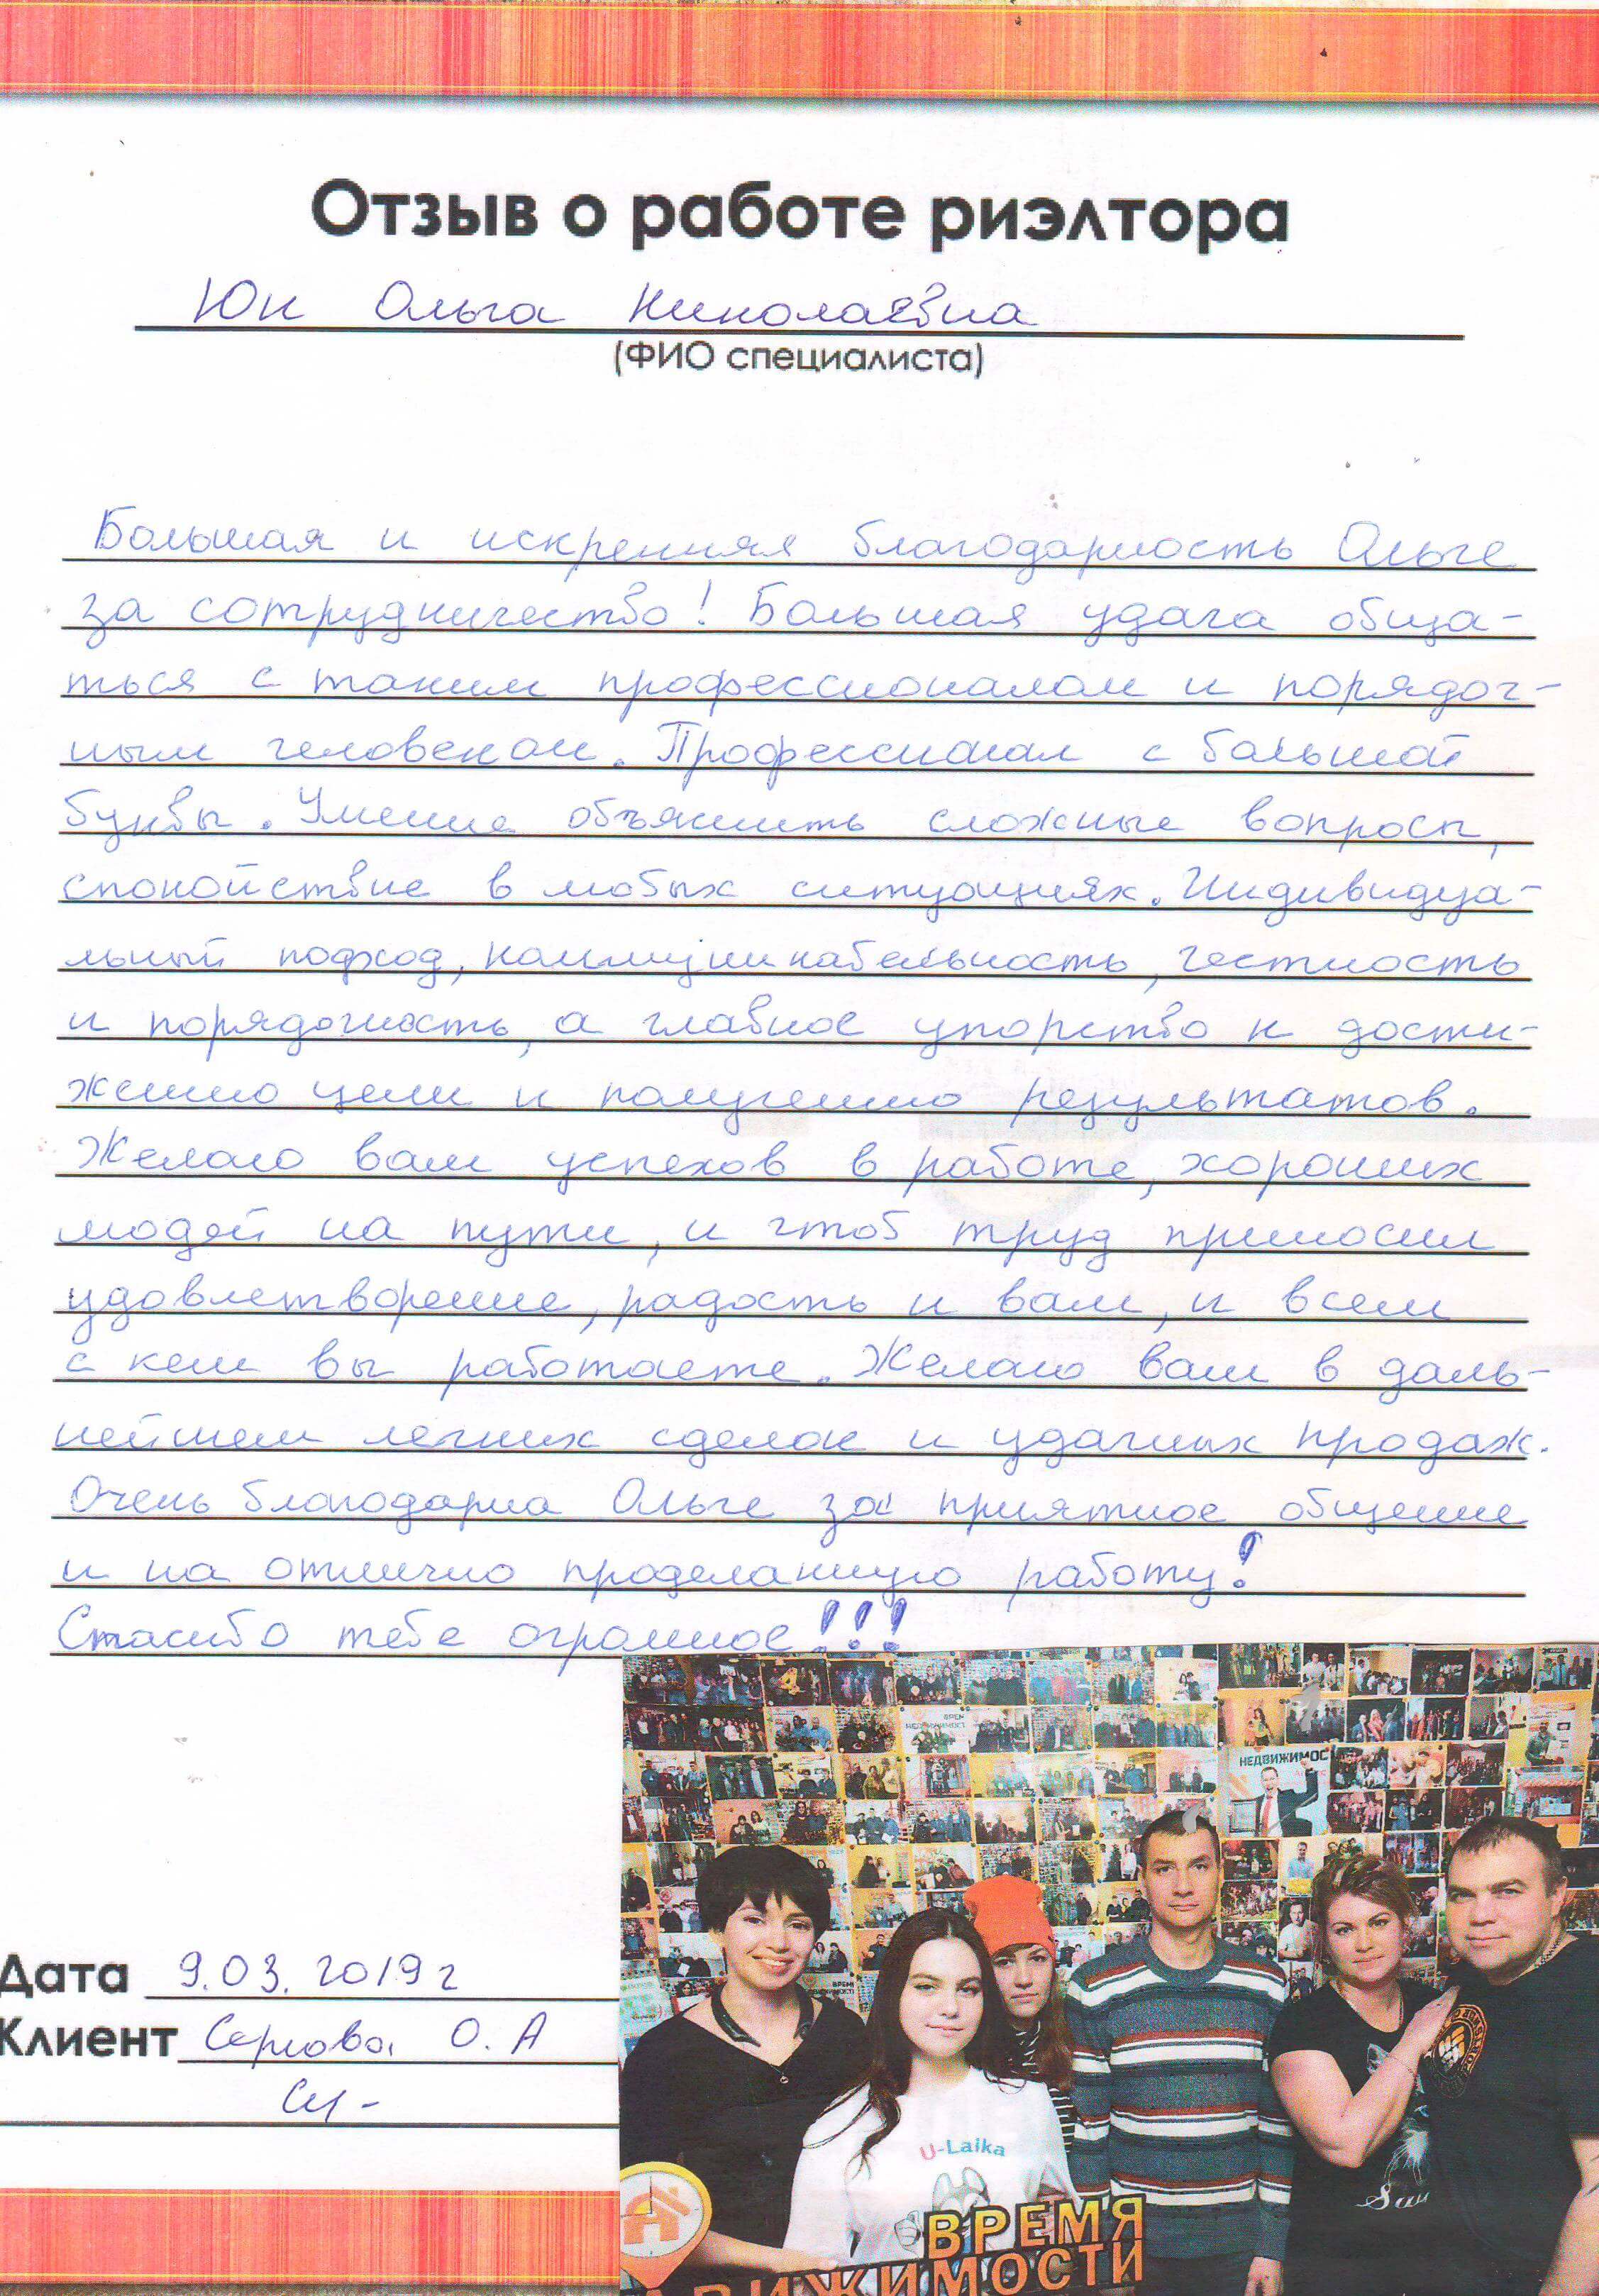 Отзыв о работе риэлтора
Юн Ольга Николаевна
(ФИО специалиста)
Большая и искренняя благодарность Ольге
за сотрудничество! Большая удача обща-
ться с таким профессионалом и порядоч-
ным человеком. Профессионал с большой
буквы. Умение объяснить сложные вопросы,
спокойствие в любых ситуациях. Индивидуа-
льный подход, коммуникабельность, честность
и порядочность, а главное упорство к дости-
жению цели и получению результатов.
Желаю вам успехов в работе, хороших
людей на пути, и чтоб труд приносил
удовлетворение, радость и вам, и всем
с кем вы работаете. Желаю вам в даль-
нейшем легких сделок и удачных продаж.
Очень благодарна Ольге за приятное общение
и на отлично проделанную работу!
Спасибо тебе огромное!!!
НЕДВИЖИМОС
Дата 9.03.2019г
Клиент О. А
U-Laika
ВРЕМЯ
ВИЖИМОСТИ